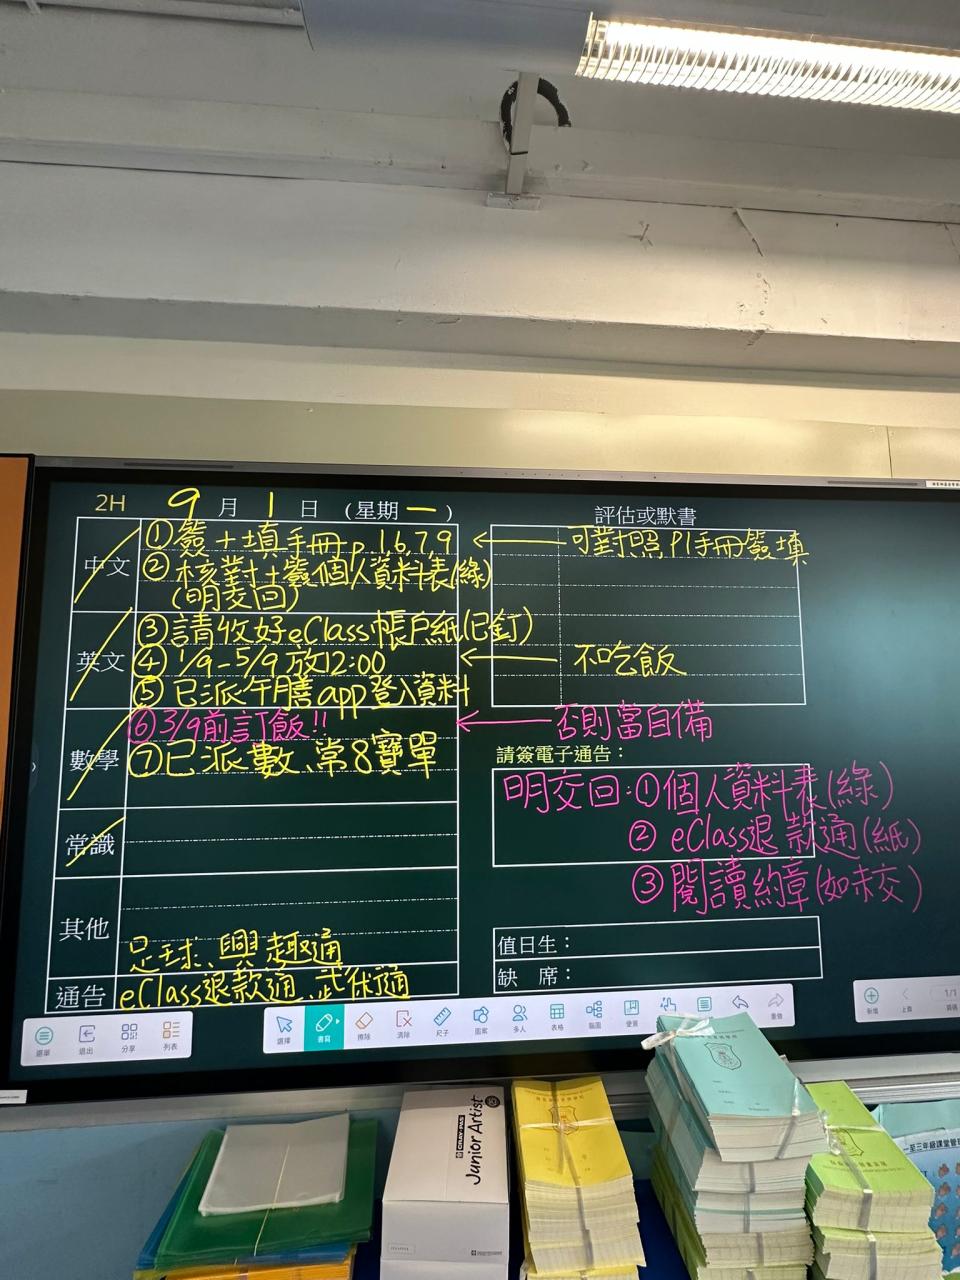 2H 9月1日 (星期一)
中文
①簽+填手冊p.1,6,7,9
②核對+簽個人資料表(綠)
(明交回)
英文
③請收好eClass帳戶紙(已釘)
④1/9-5/9放12:00
⑤已派午膳app登入資料
⑥3/9前訂飯!!
數學
⑦已派數、常8寶單
常識
其他
足球、興趣通
通告
eClass退款通
評估或默書
可對照P1手冊簽填
不吃飯
否則當自備
請簽電子通告：
明交回:①個人資料表(綠)
②eClass退款通(紙)
③閱讀約章(如未交)
值日生：
缺 席：
選單 退出 分享 列表
選擇 書寫 擦除 清除 尺子 圖案 多人 表格 腦圖 便簽
重做
新增 上頁 1/1
Junior Artist
一至三年級課堂管